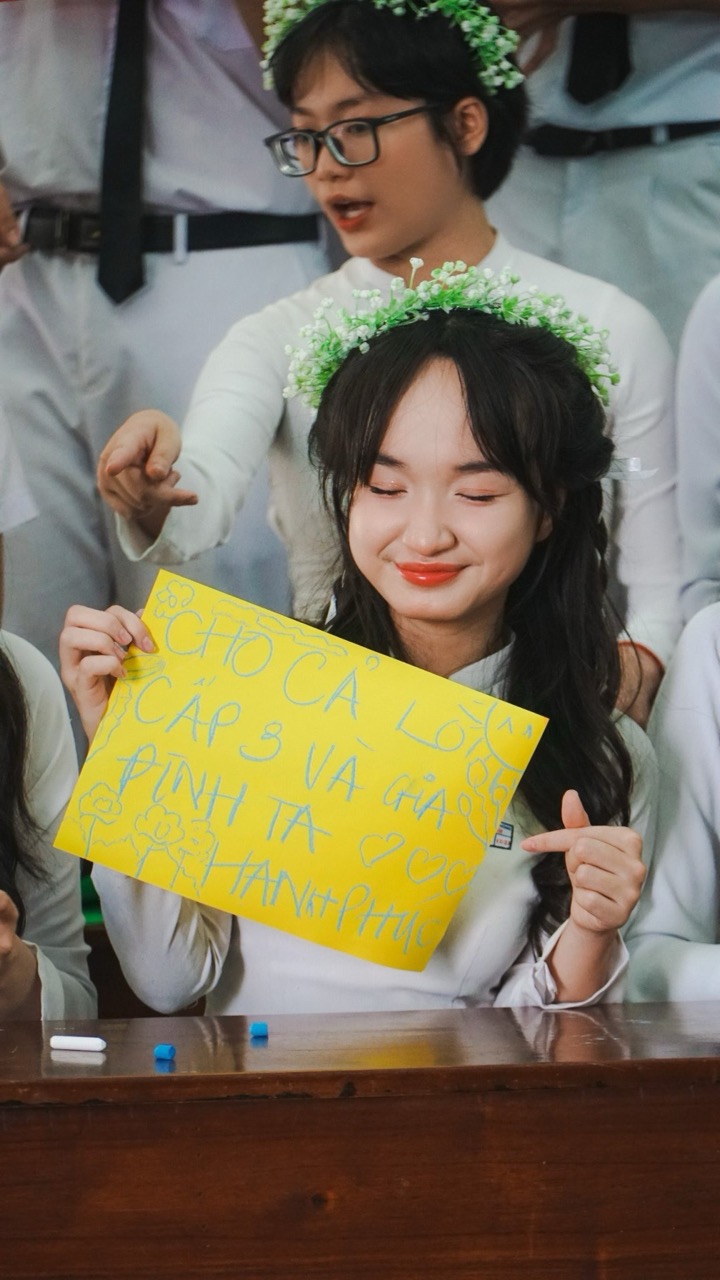 CHO CẢ LỚI
CẤP 3 VÀ GIA
ĐÌNH TA
HẠNH PHÚC